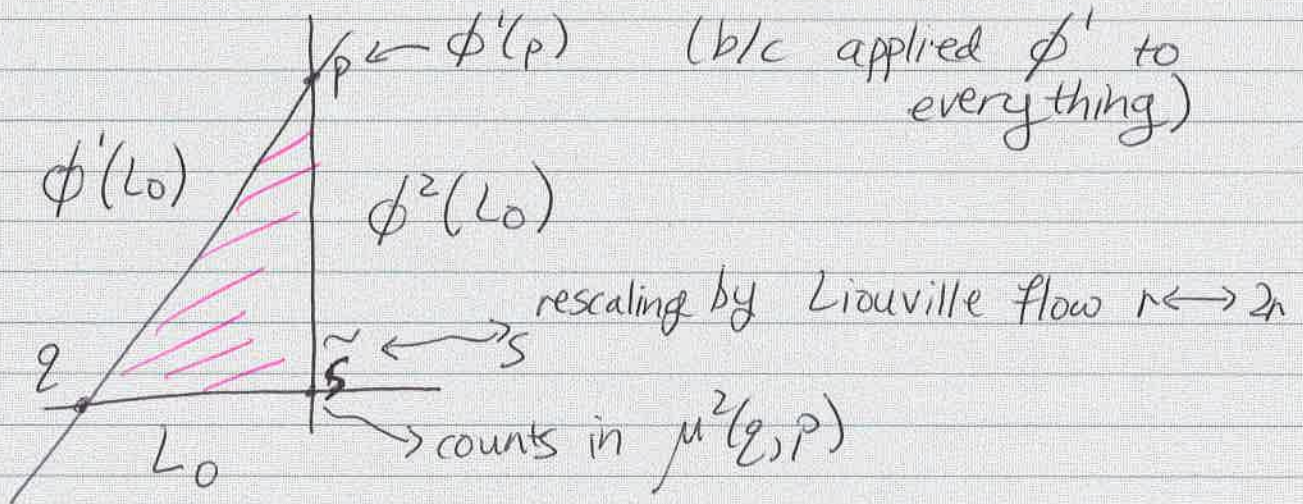 p ← ϕ¹(p) (b/c applied ϕ¹ to
everything)
ϕ¹(L₀)
ϕ²(L₀)
rescaling by Liouville flow r ↔ 2r
s̃ ↔ s
q
→ counts in μ²(q,p)
L₀